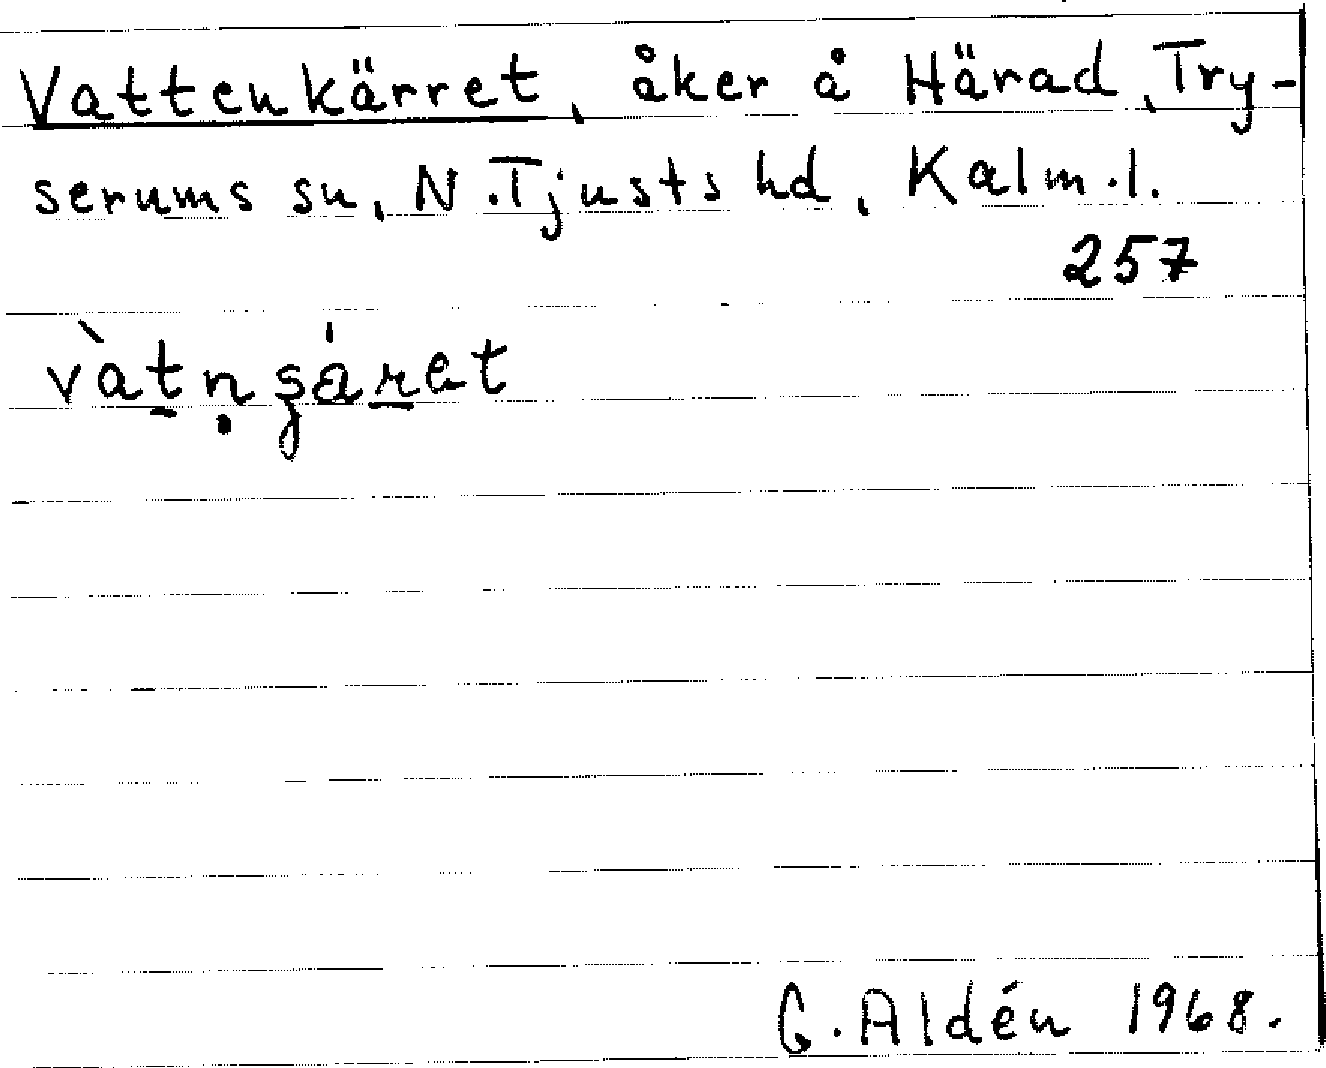 Vattenkärret, åker å Härad, Try-
serums sn, N. Tjusts hd, Kalm. l.
257
G. Aldén 1968.